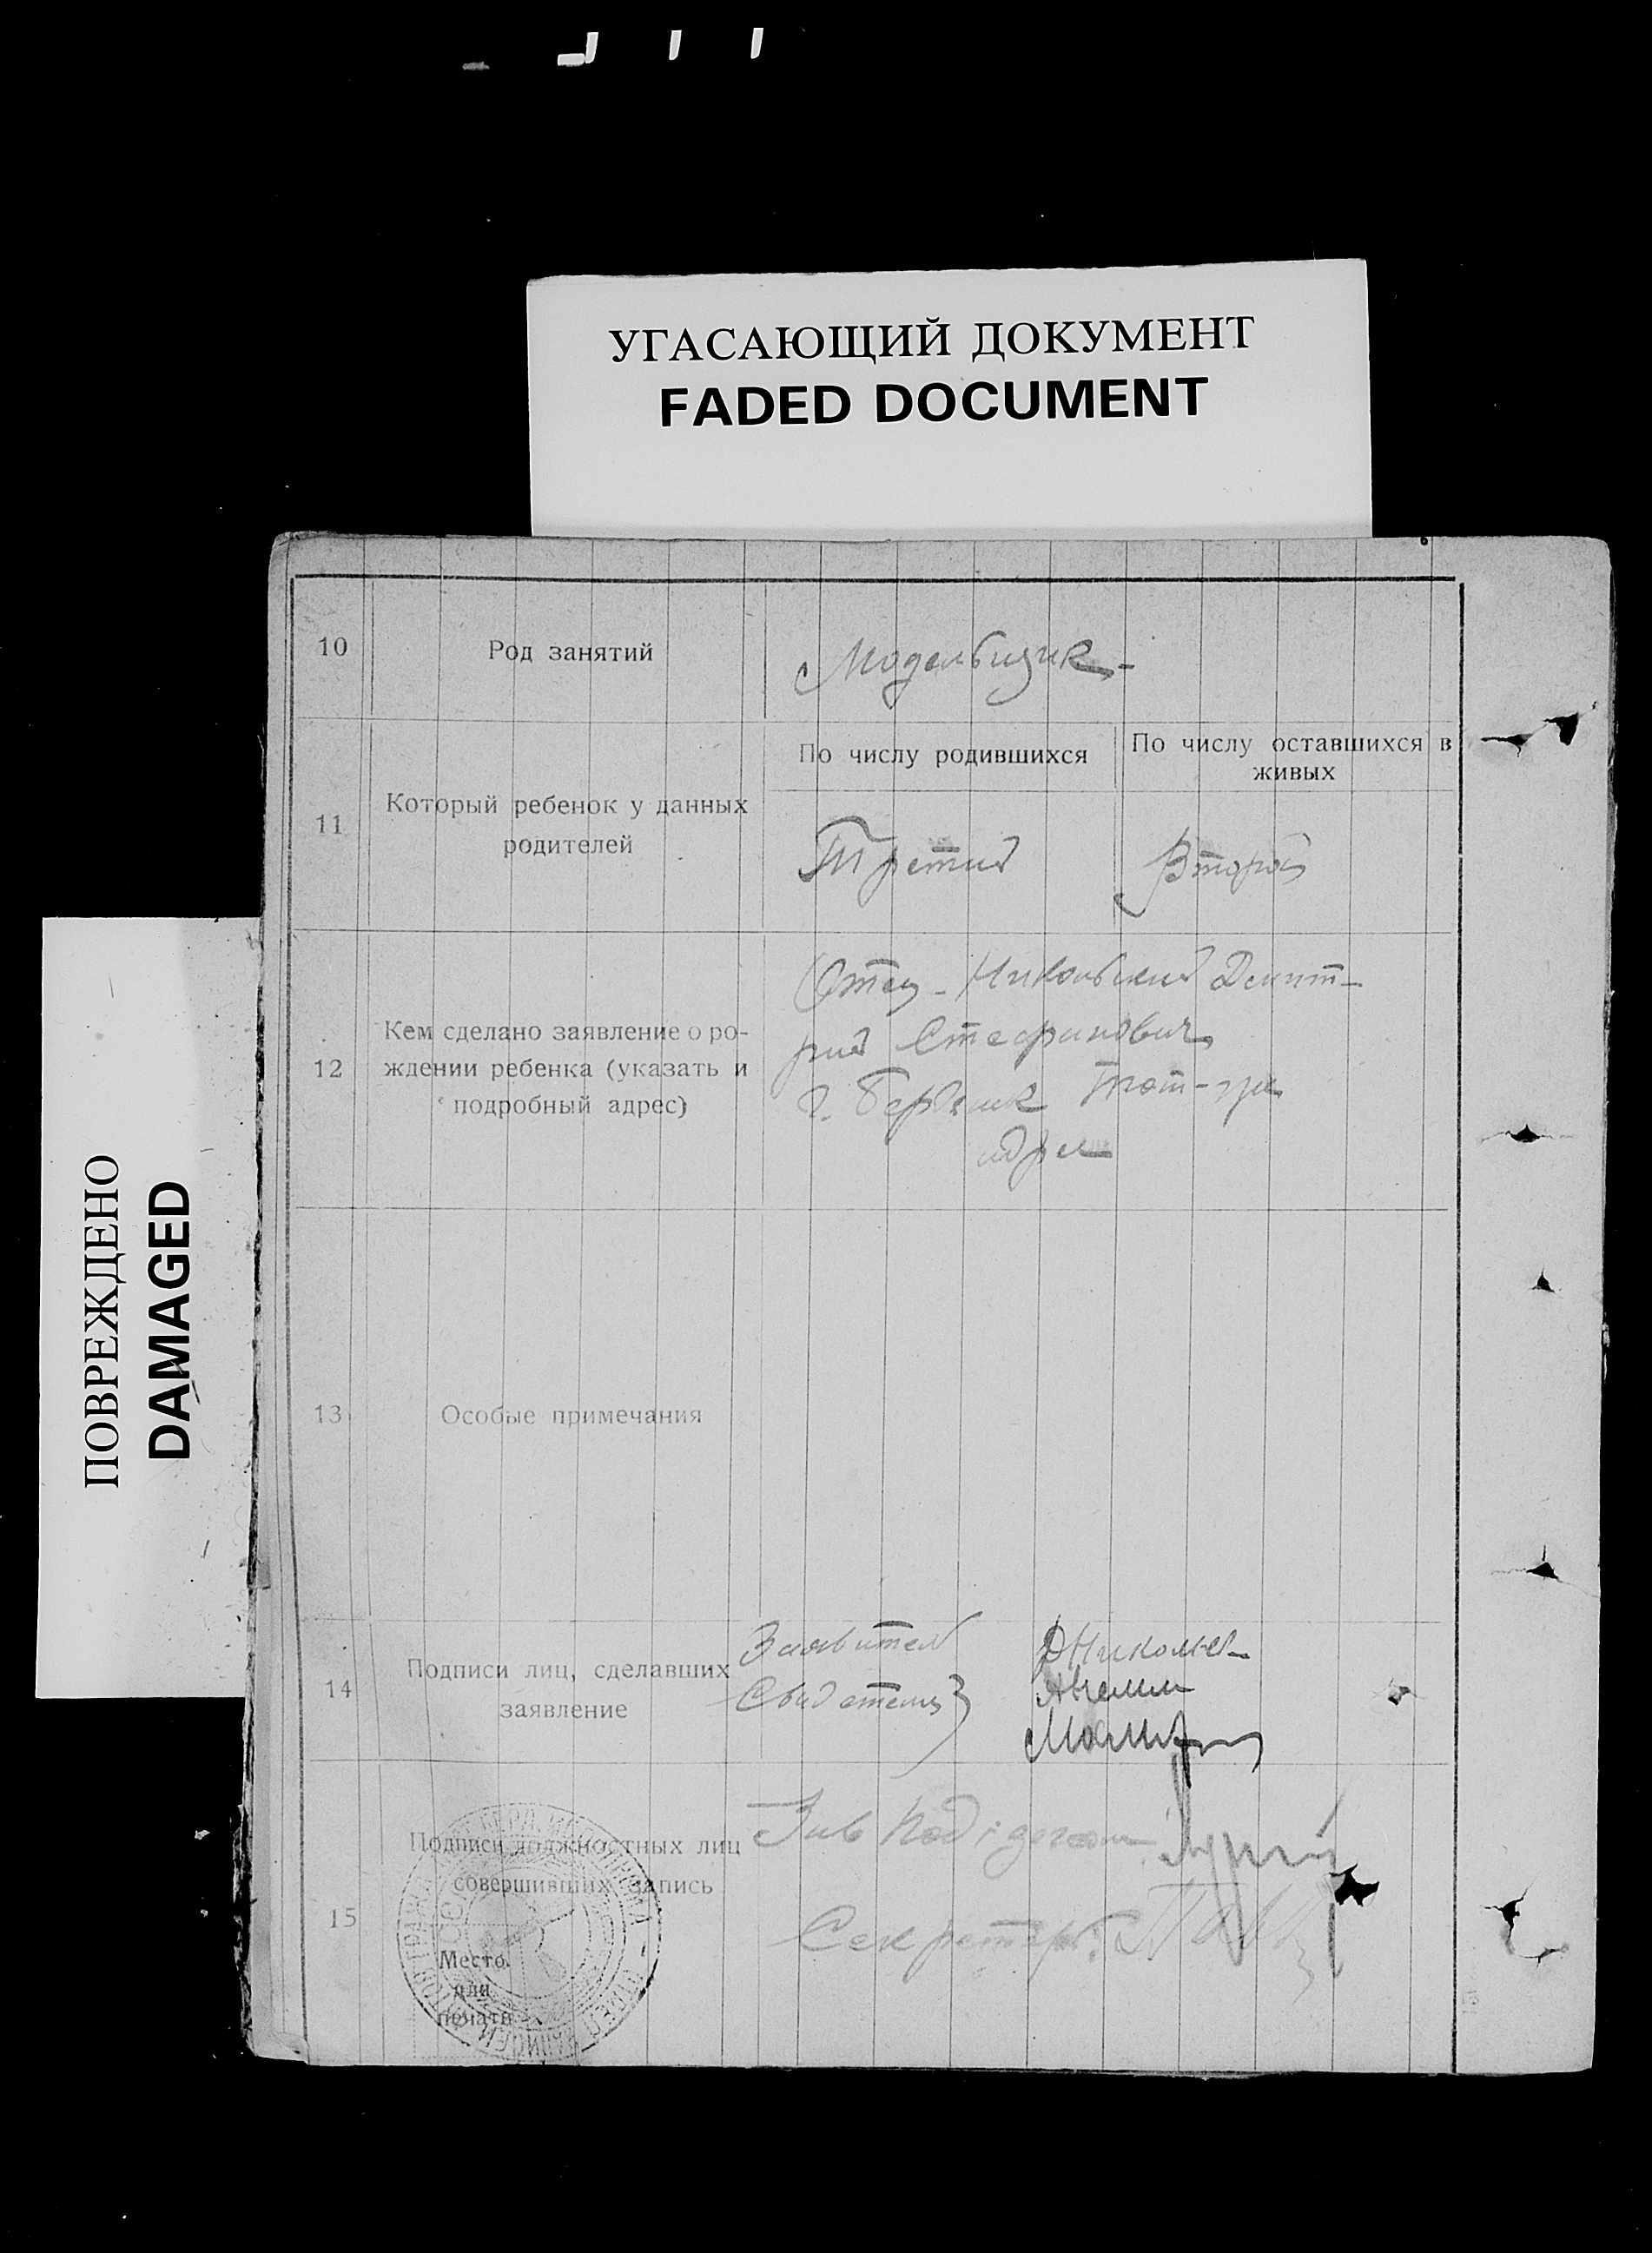 УГАСАЮЩИЙ ДОКУМЕНТ
FADED DOCUMENT
ПОВРЕЖДЕНО
DAMAGED
10 Род занятий Модельщик
11 Который ребенок у данных
родителей
По числу родившихся
По числу оставшихся в
живых
Третий
Второй
12 Кем сделано заявление о ро-
ждении ребенка (указать и
подробный адрес)
Отец - Никольский Дмит-
рий Стефанович
г. Тот-же
адрес
13 Особые примечания
14 Подписи лиц, сделавших
заявление
Заявитель
Свидетели
15 Подписи должностных лиц
совершивших запись
Место
для
печати
Зав
Секретарь